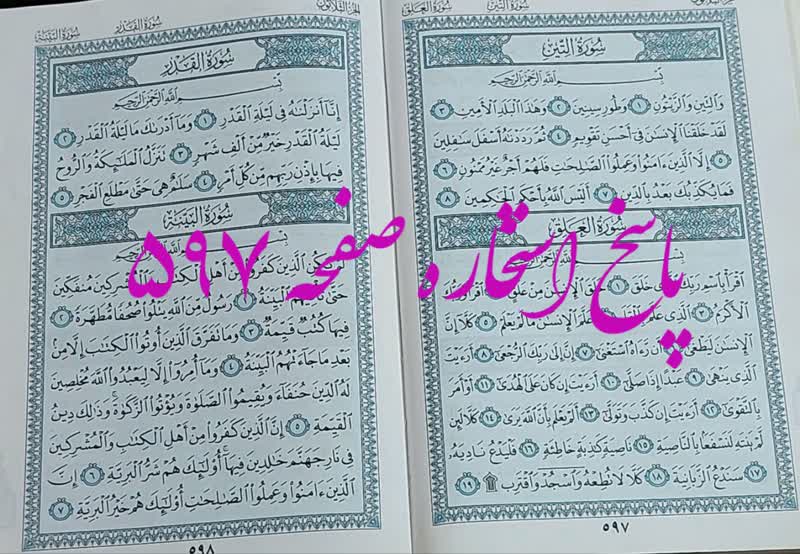 سُورَةُ التِّينِ
سُورَةُ العَلَقِ
سُورَةُ التِّينِ
بِسْمِ اللَّهِ الرَّحْمَٰنِ الرَّحِيمِ
وَالتِّينِ وَالزَّيْتُونِ ١ وَطُورِ سِينِينَ ٢ وَهَٰذَا الْبَلَدِ الْأَمِينِ ٣
لَقَدْ خَلَقْنَا الْإِنسَٰنَ فِي أَحْسَنِ تَقْوِيمٍ ٤ ثُمَّ رَدَدْنَٰهُ أَسْفَلَ سَٰفِلِينَ
٥ إِلَّا الَّذِينَ ءَامَنُوا وَعَمِلُوا الصَّٰلِحَٰتِ فَلَهُمْ أَجْرٌ غَيْرُ مَمْنُونٍ ٦
فَمَا يُكَذِّبُكَ بَعْدُ بِالدِّينِ ٧ أَلَيْسَ اللَّهُ بِأَحْكَمِ الْحَٰكِمِينَ ٨
سُورَةُ العَلَقِ
اقْرَأْ بِاسْمِ رَبِّكَ خَلَقَ ١ مِنْ عَلَقٍ
الْأَكْرَمُ ٣ الَّذِي عَلَّمَ عَلَّمَ الْإِنسَٰنَ مَا لَمْ يَعْلَمْ ٥ كَلَّا إِنَّ
الْإِنسَٰنَ لَيَطْغَىٰ أَن رَّءَاهُ اسْتَغْنَىٰ ٧ إِنَّ إِلَىٰ رَبِّكَ الرُّجْعَىٰ ٨ أَرَءَيْتَ
الَّذِي يَنْهَىٰ ٩ عَبْدًا إِذَا صَلَّىٰ ١٠ أَرَءَيْتَ إِن كَانَ عَلَى الْهُدَىٰ ١١ أَوْ أَمَرَ
بِالتَّقْوَىٰ ١٢ أَرَءَيْتَ إِن كَذَّبَ وَتَوَلَّىٰ ١٣ أَلَمْ يَعْلَم بِأَنَّ اللَّهَ يَرَىٰ ١٤ كَلَّا لَئِن
لَّمْ يَنتَهِ لَنَسْفَعًا بِالنَّاصِيَةِ ١٥ نَاصِيَةٍ كَٰذِبَةٍ خَاطِئَةٍ ١٦ فَلْيَدْعُ نَادِيَهُ
١٧ سَنَدْعُ الزَّبَانِيَةَ ١٨ كَلَّا لَا تُطِعْهُ وَاسْجُدْ وَاقْتَرِب ۩ ١٩
٥٩٧
الجُزْءُ الثَّلَاثُونَ
سُورَةُ القَدْرِ
سُورَةُ البَيِّنَةِ
سُورَةُ القَدْرِ
بِسْمِ اللَّهِ الرَّحْمَٰنِ الرَّحِيمِ
إِنَّا أَنزَلْنَٰهُ فِي لَيْلَةِ الْقَدْرِ ١ وَمَا أَدْرَىٰكَ مَا لَيْلَةُ الْقَدْرِ ٢
لَيْلَةُ الْقَدْرِ خَيْرٌ مِّنْ أَلْفِ شَهْرٍ ٣ تَنَزَّلُ الْمَلَٰئِكَةُ وَالرُّوحُ
فِيهَا بِإِذْنِ رَبِّهِم مِّن كُلِّ أَمْرٍ ٤ سَلَٰمٌ هِيَ حَتَّىٰ مَطْلَعِ الْفَجْرِ ٥
سُورَةُ البَيِّنَةِ
بِسْمِ اللَّهِ الرَّحْمَٰنِ الرَّحِيمِ
لَمْ يَكُنِ الَّذِينَ كَفَرُوا مِنْ أَهْلِ الْكِتَٰبِ وَالْمُشْرِكِينَ مُنفَكِّينَ
حَتَّىٰ تَأْتِيَهُمُ الْبَيِّنَةُ ١ رَسُولٌ مِّنَ اللَّهِ يَتْلُوا صُحُفًا مُّطَهَّرَةً ٢
فِيهَا كُتُبٌ قَيِّمَةٌ ٣ وَمَا تَفَرَّقَ الَّذِينَ أُوتُوا الْكِتَٰبَ إِلَّا مِن
بَعْدِ مَا جَاءَتْهُمُ الْبَيِّنَةُ ٤ وَمَا أُمِرُوا إِلَّا لِيَعْبُدُوا اللَّهَ مُخْلِصِينَ
لَهُ الدِّينَ حُنَفَاءَ وَيُقِيمُوا الصَّلَوٰةَ وَيُؤْتُوا الزَّكَوٰةَ وَذَٰلِكَ دِينُ
الْقَيِّمَةِ ٥ إِنَّ الَّذِينَ كَفَرُوا مِنْ أَهْلِ الْكِتَٰبِ وَالْمُشْرِكِينَ
فِي نَارِ جَهَنَّمَ خَٰلِدِينَ فِيهَا أُولَٰئِكَ هُمْ شَرُّ الْبَرِيَّةِ ٦ إِنَّ
الَّذِينَ ءَامَنُوا وَعَمِلُوا الصَّٰلِحَٰتِ أُولَٰئِكَ هُمْ خَيْرُ الْبَرِيَّةِ ٧
٥٩٨
پاسخ استخاره صفحه ۵۹۷